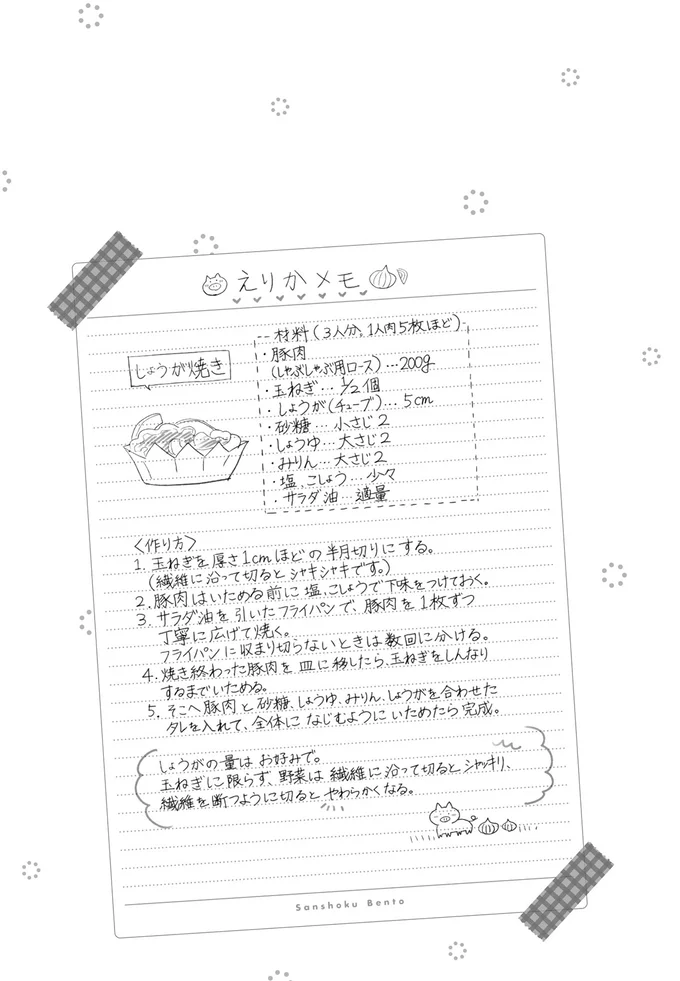 えりかメモ
しょうが焼き
材料(3人分。1人肉5枚ほど)
・豚肉
(しゃぶしゃぶ用ロース)…200g
・玉ねぎ…1/2個
・しょうが(チューブ)…5cm
・砂糖…小さじ2
・しょうゆ…大さじ2
・みりん…大さじ2
・塩、こしょう…少々
・サラダ油…適量
〈作り方〉
1. 玉ねぎを厚さ1cmほどの半月切りにする。
(繊維に沿って切るとシャキシャキです。)
2. 豚肉はいためる前に塩、こしょうで下味をつけておく。
3. サラダ油を引いたフライパンで、豚肉を1枚ずつ
丁寧に広げて焼く。
フライパンに収まり切らないときは数回に分ける。
4. 焼き終わった豚肉を皿に移したら、玉ねぎをしんなり
するまでいためる。
5. そこへ豚肉と砂糖、しょうゆ、みりん、しょうがを合わせた
タレを入れて、全体になじむようにいためたら完成。
しょうがの量はお好みで。
玉ねぎに限らず、野菜は繊維に沿って切るとシャッキリ、
繊維を断つように切るとやわらかくなる。
Sanshoku Bento